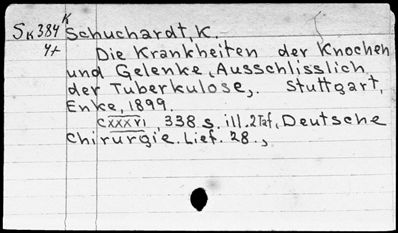 SK384 K Schuchardt, K.
4+ Die Krankheiten der Knochen
und Gelenke, Ausschlisslich
der Tuberkulose,. Stuttgart,
Enke, 1899.
cxxxvi, 338 s. ill. 2 Taf., Deutsche
Chirurgie. Lief. 28.,